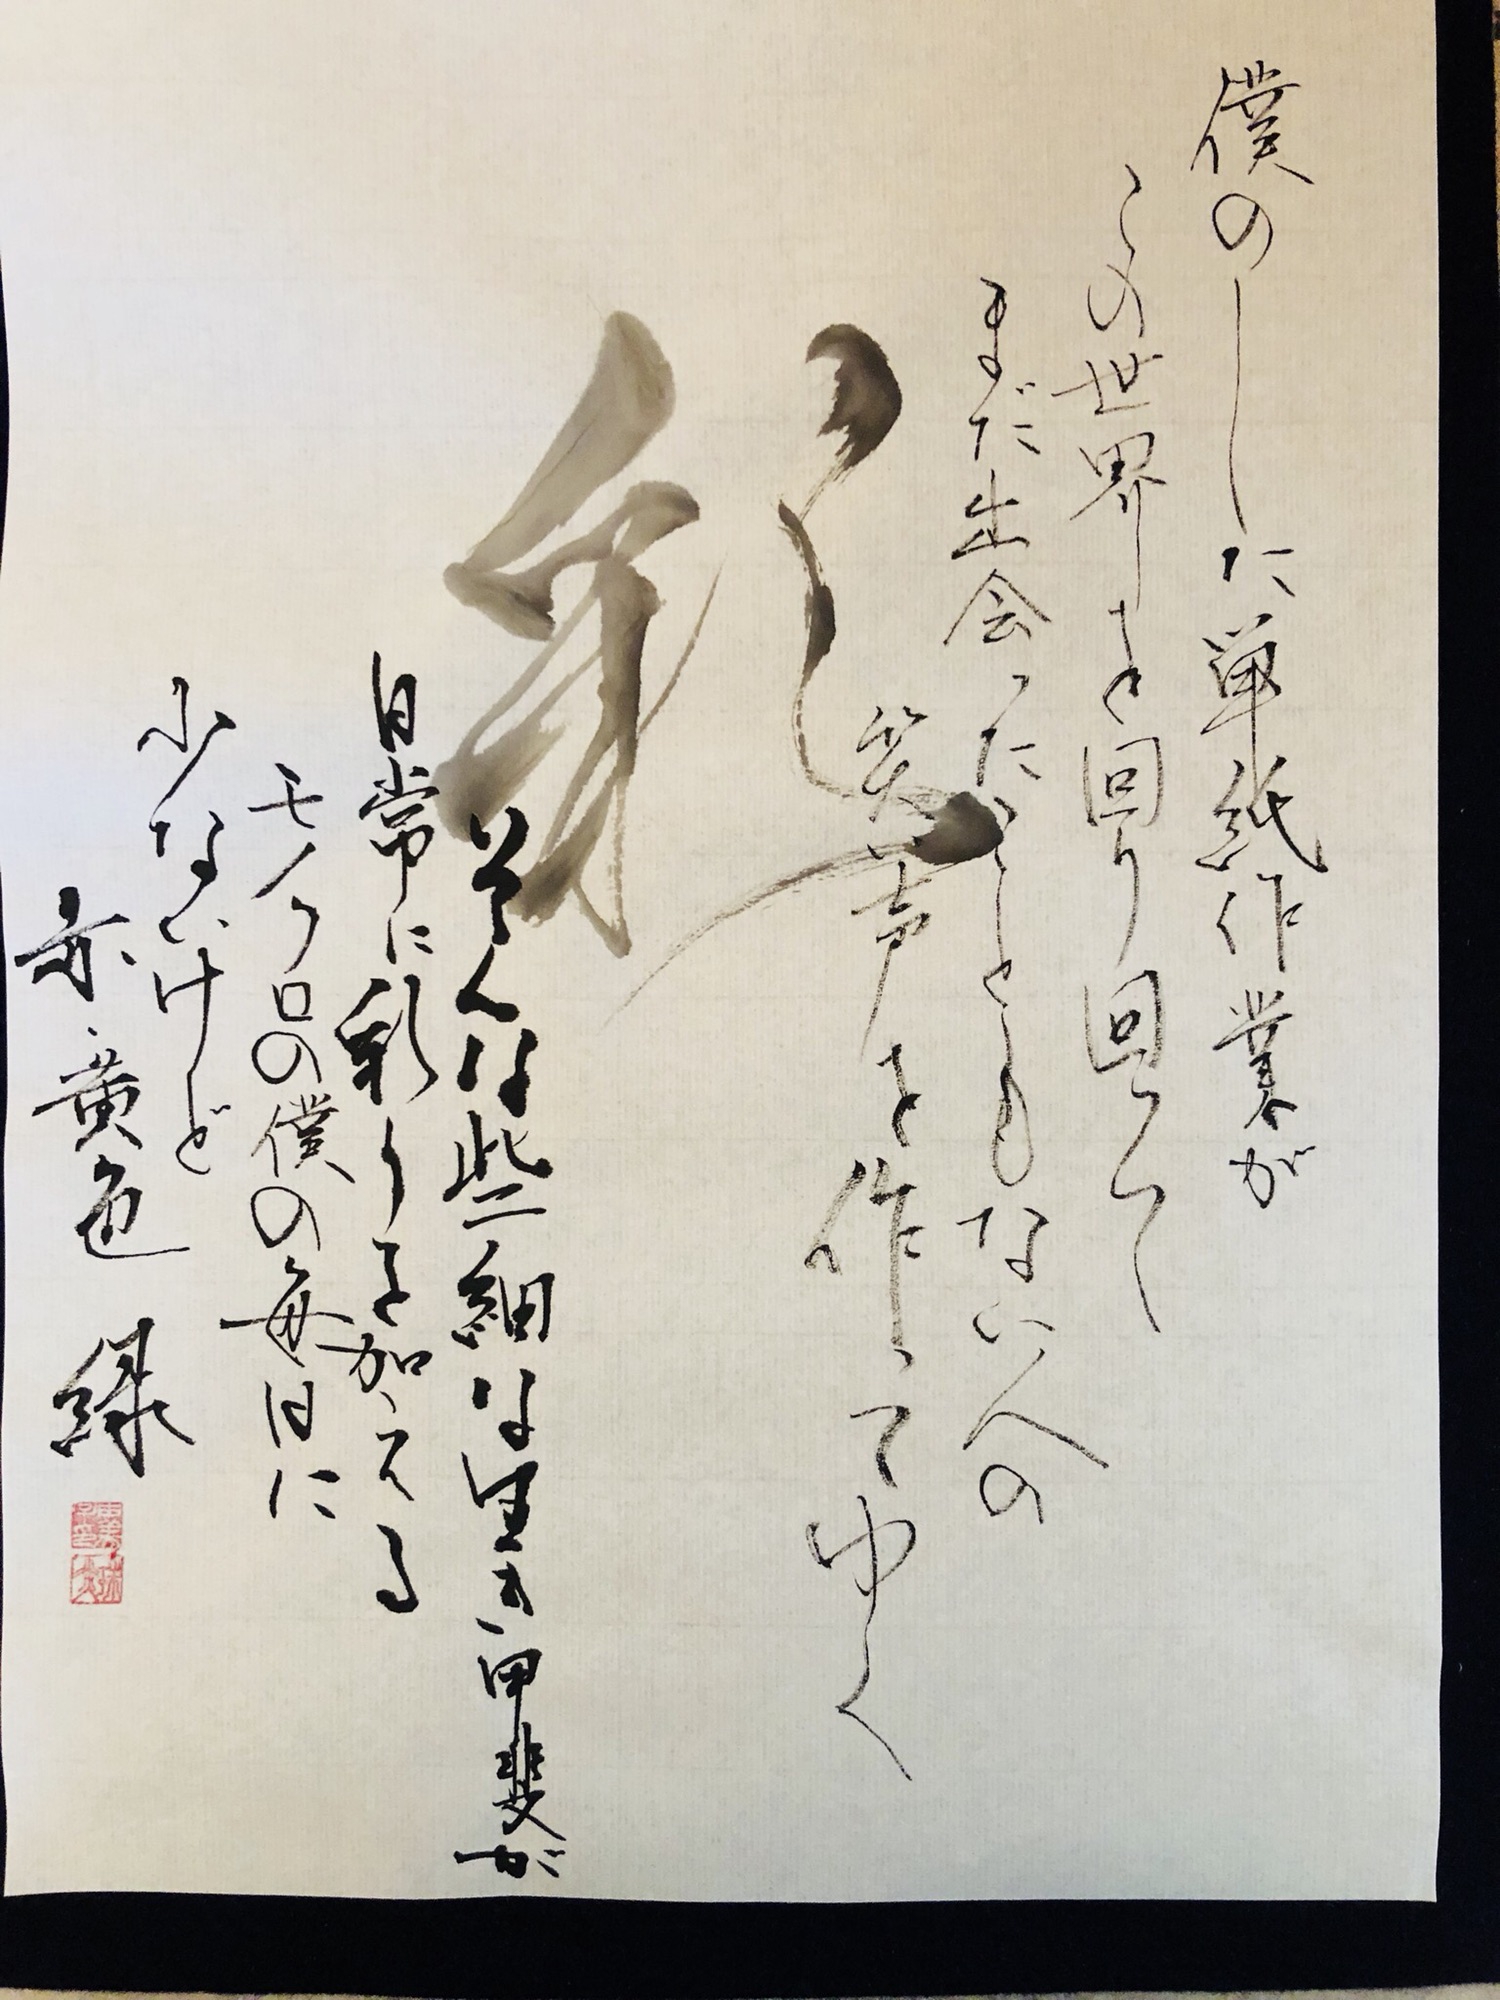 僕のした単純作業が
この世界を回り回って
まだ出会ったこともない人の
笑い声を作ってゆく
彩
そんな些細な生き甲斐が
日常に彩りを加える
モノクロの僕の毎日に
少ないけど
赤 黄色 緑